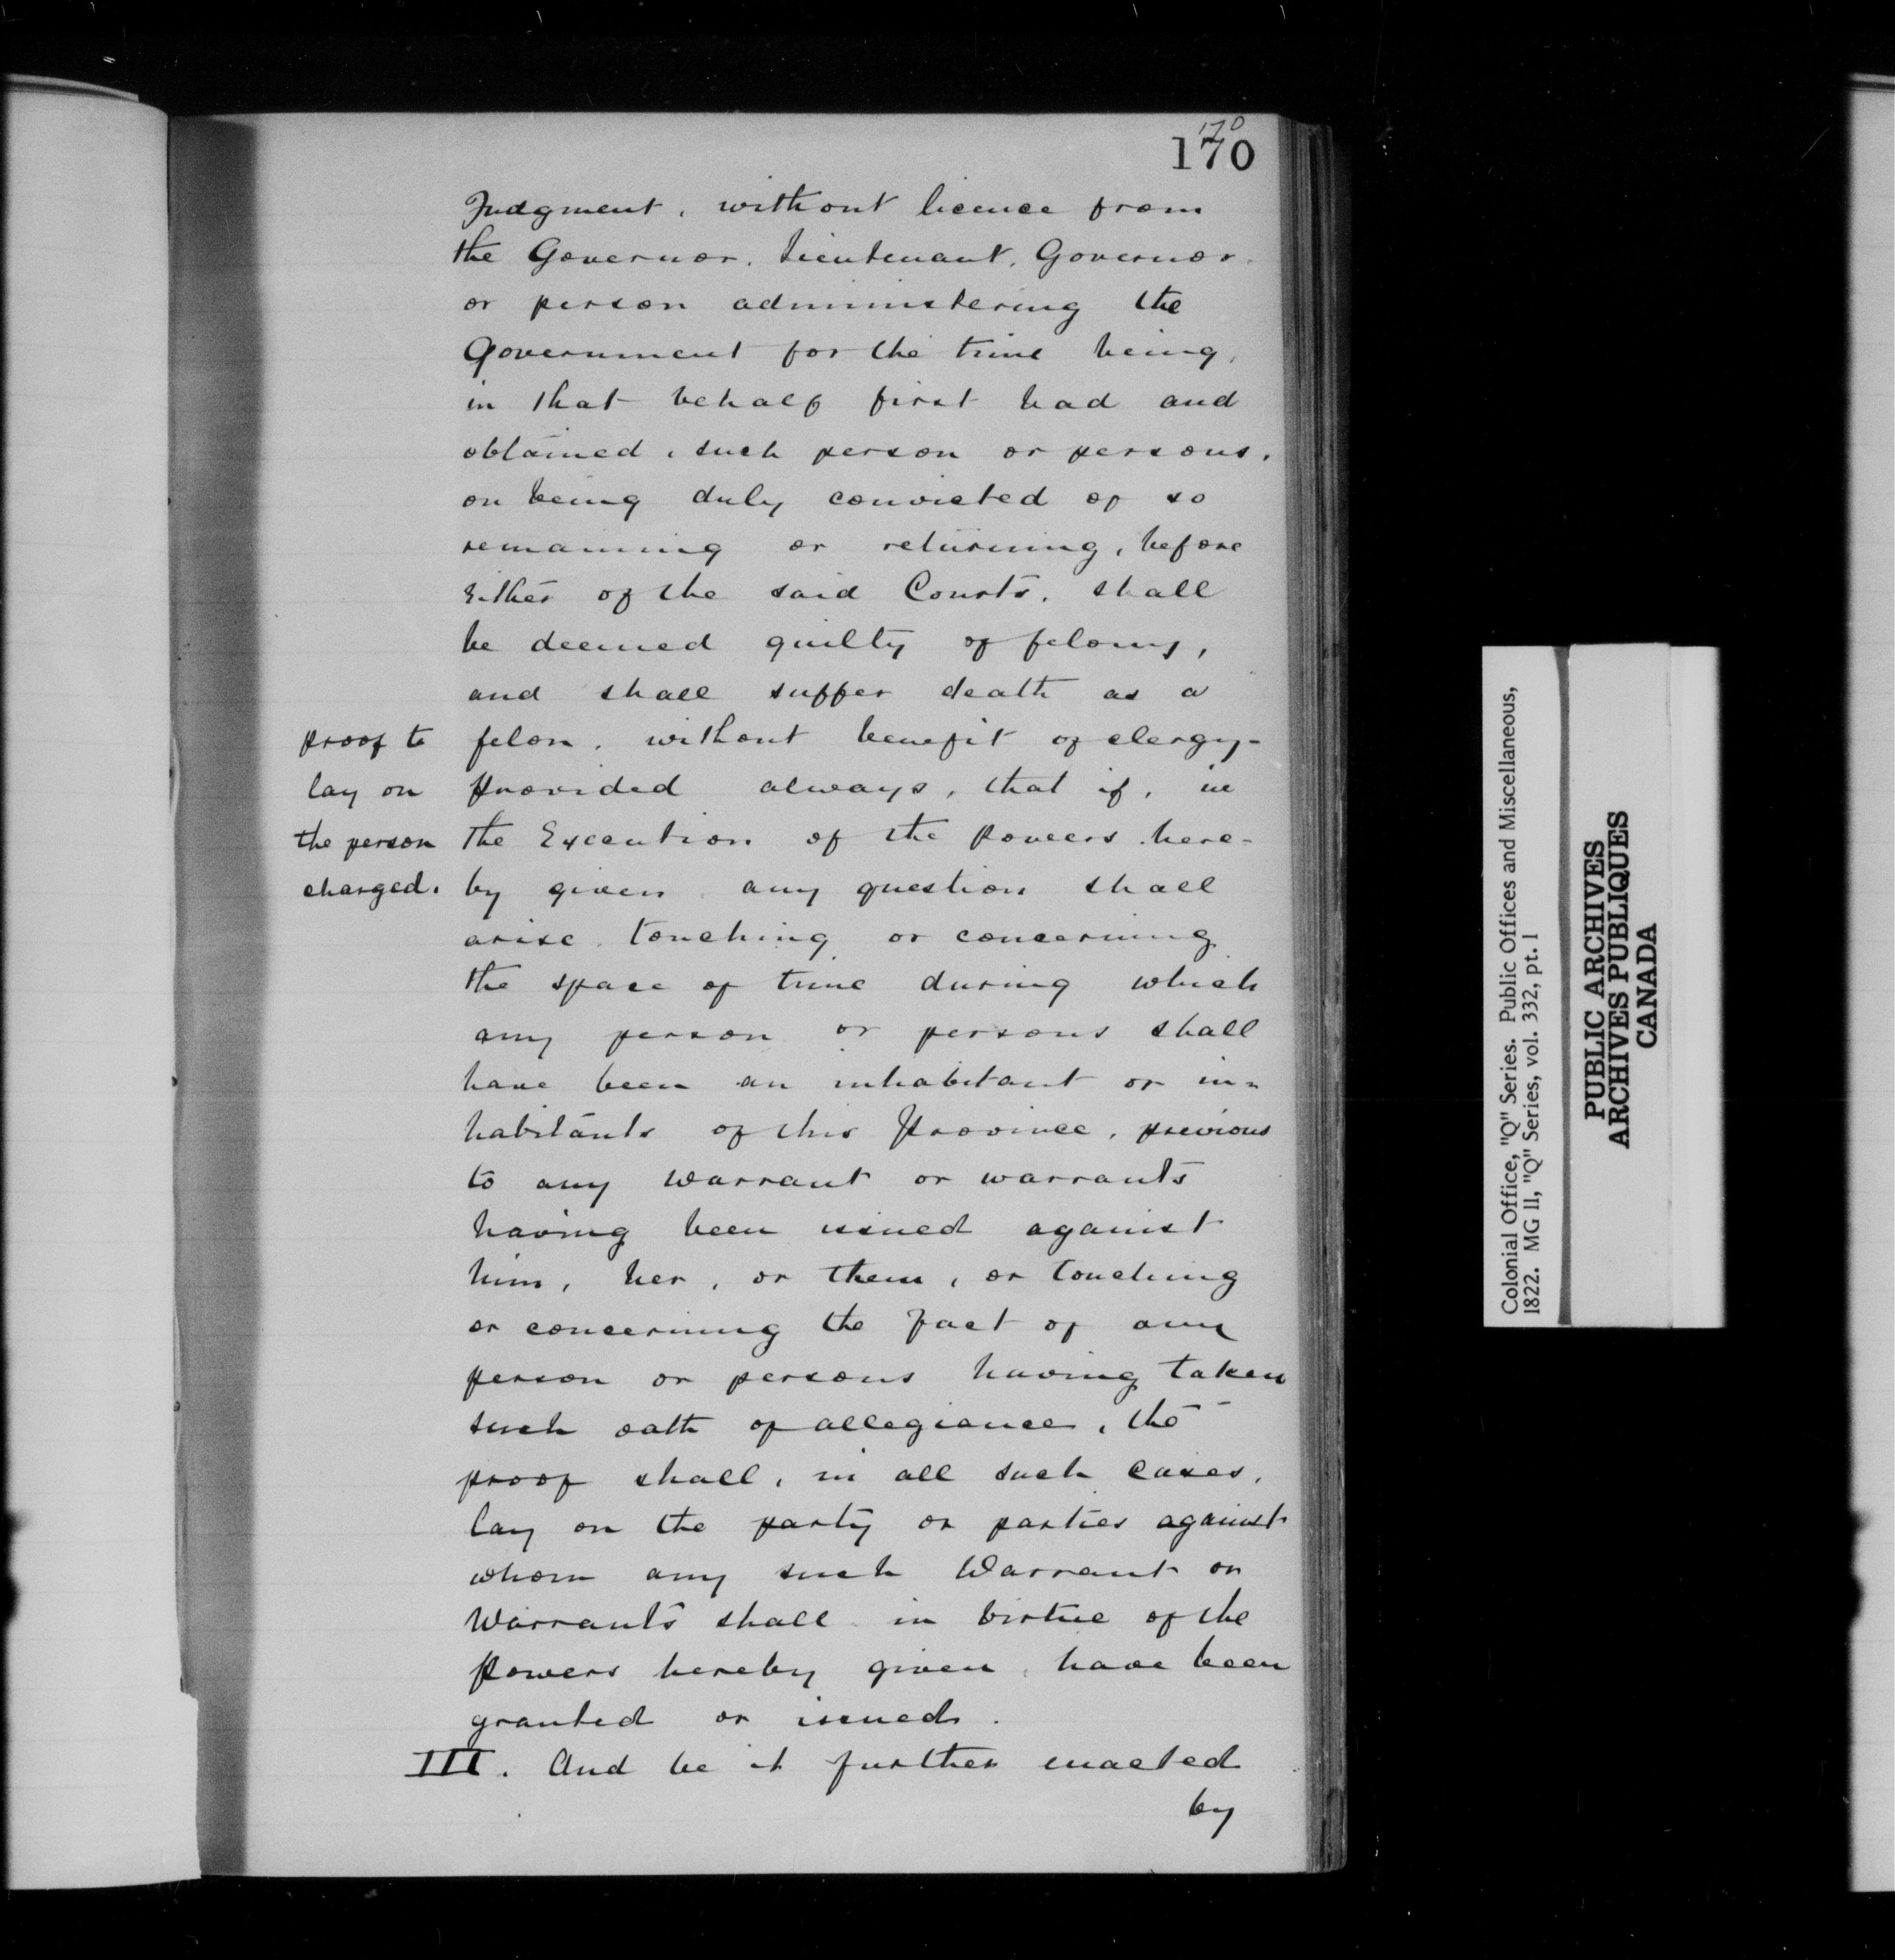 170
170
Judgment, without licence from
the Governor, Lieutenant, Governor
or person administering the
Government for the time being,
in that behalf first had and
obtained, such person or persons,
on being duly convicted of so
remaining or returning, before
Either of the said Courts, shall
be deemed guilty of felony,
and shall suffer death as a
felon, without benefit of clergy-
proof to
lay on
the person
charged.
provided always, that if, in
the Execution of the powers here-
by given any question shall
arise, touching or concerning
the space of time during which
any person or persons shall
have been an inhabitant or in-
habitants of this Province, previous
to any warrant or warrants
having been issued against
him, her, or them, or touching
or concerning the fact of any
person or persons having taken
such oath of allegiance, the
proof shall, in all such cases,
lay on the party or parties against
whom any such Warrant or
Warrants shall in virtue of the
powers hereby given, have been
granted or issued.
III. And be it further enacted
by
Colonial Office, "Q" Series. Public Offices and Miscellaneous,
1822. MG 11, "Q" Series, vol. 332, pt. 1
PUBLIC ARCHIVES
ARCHIVES PUBLIQUES
CANADA